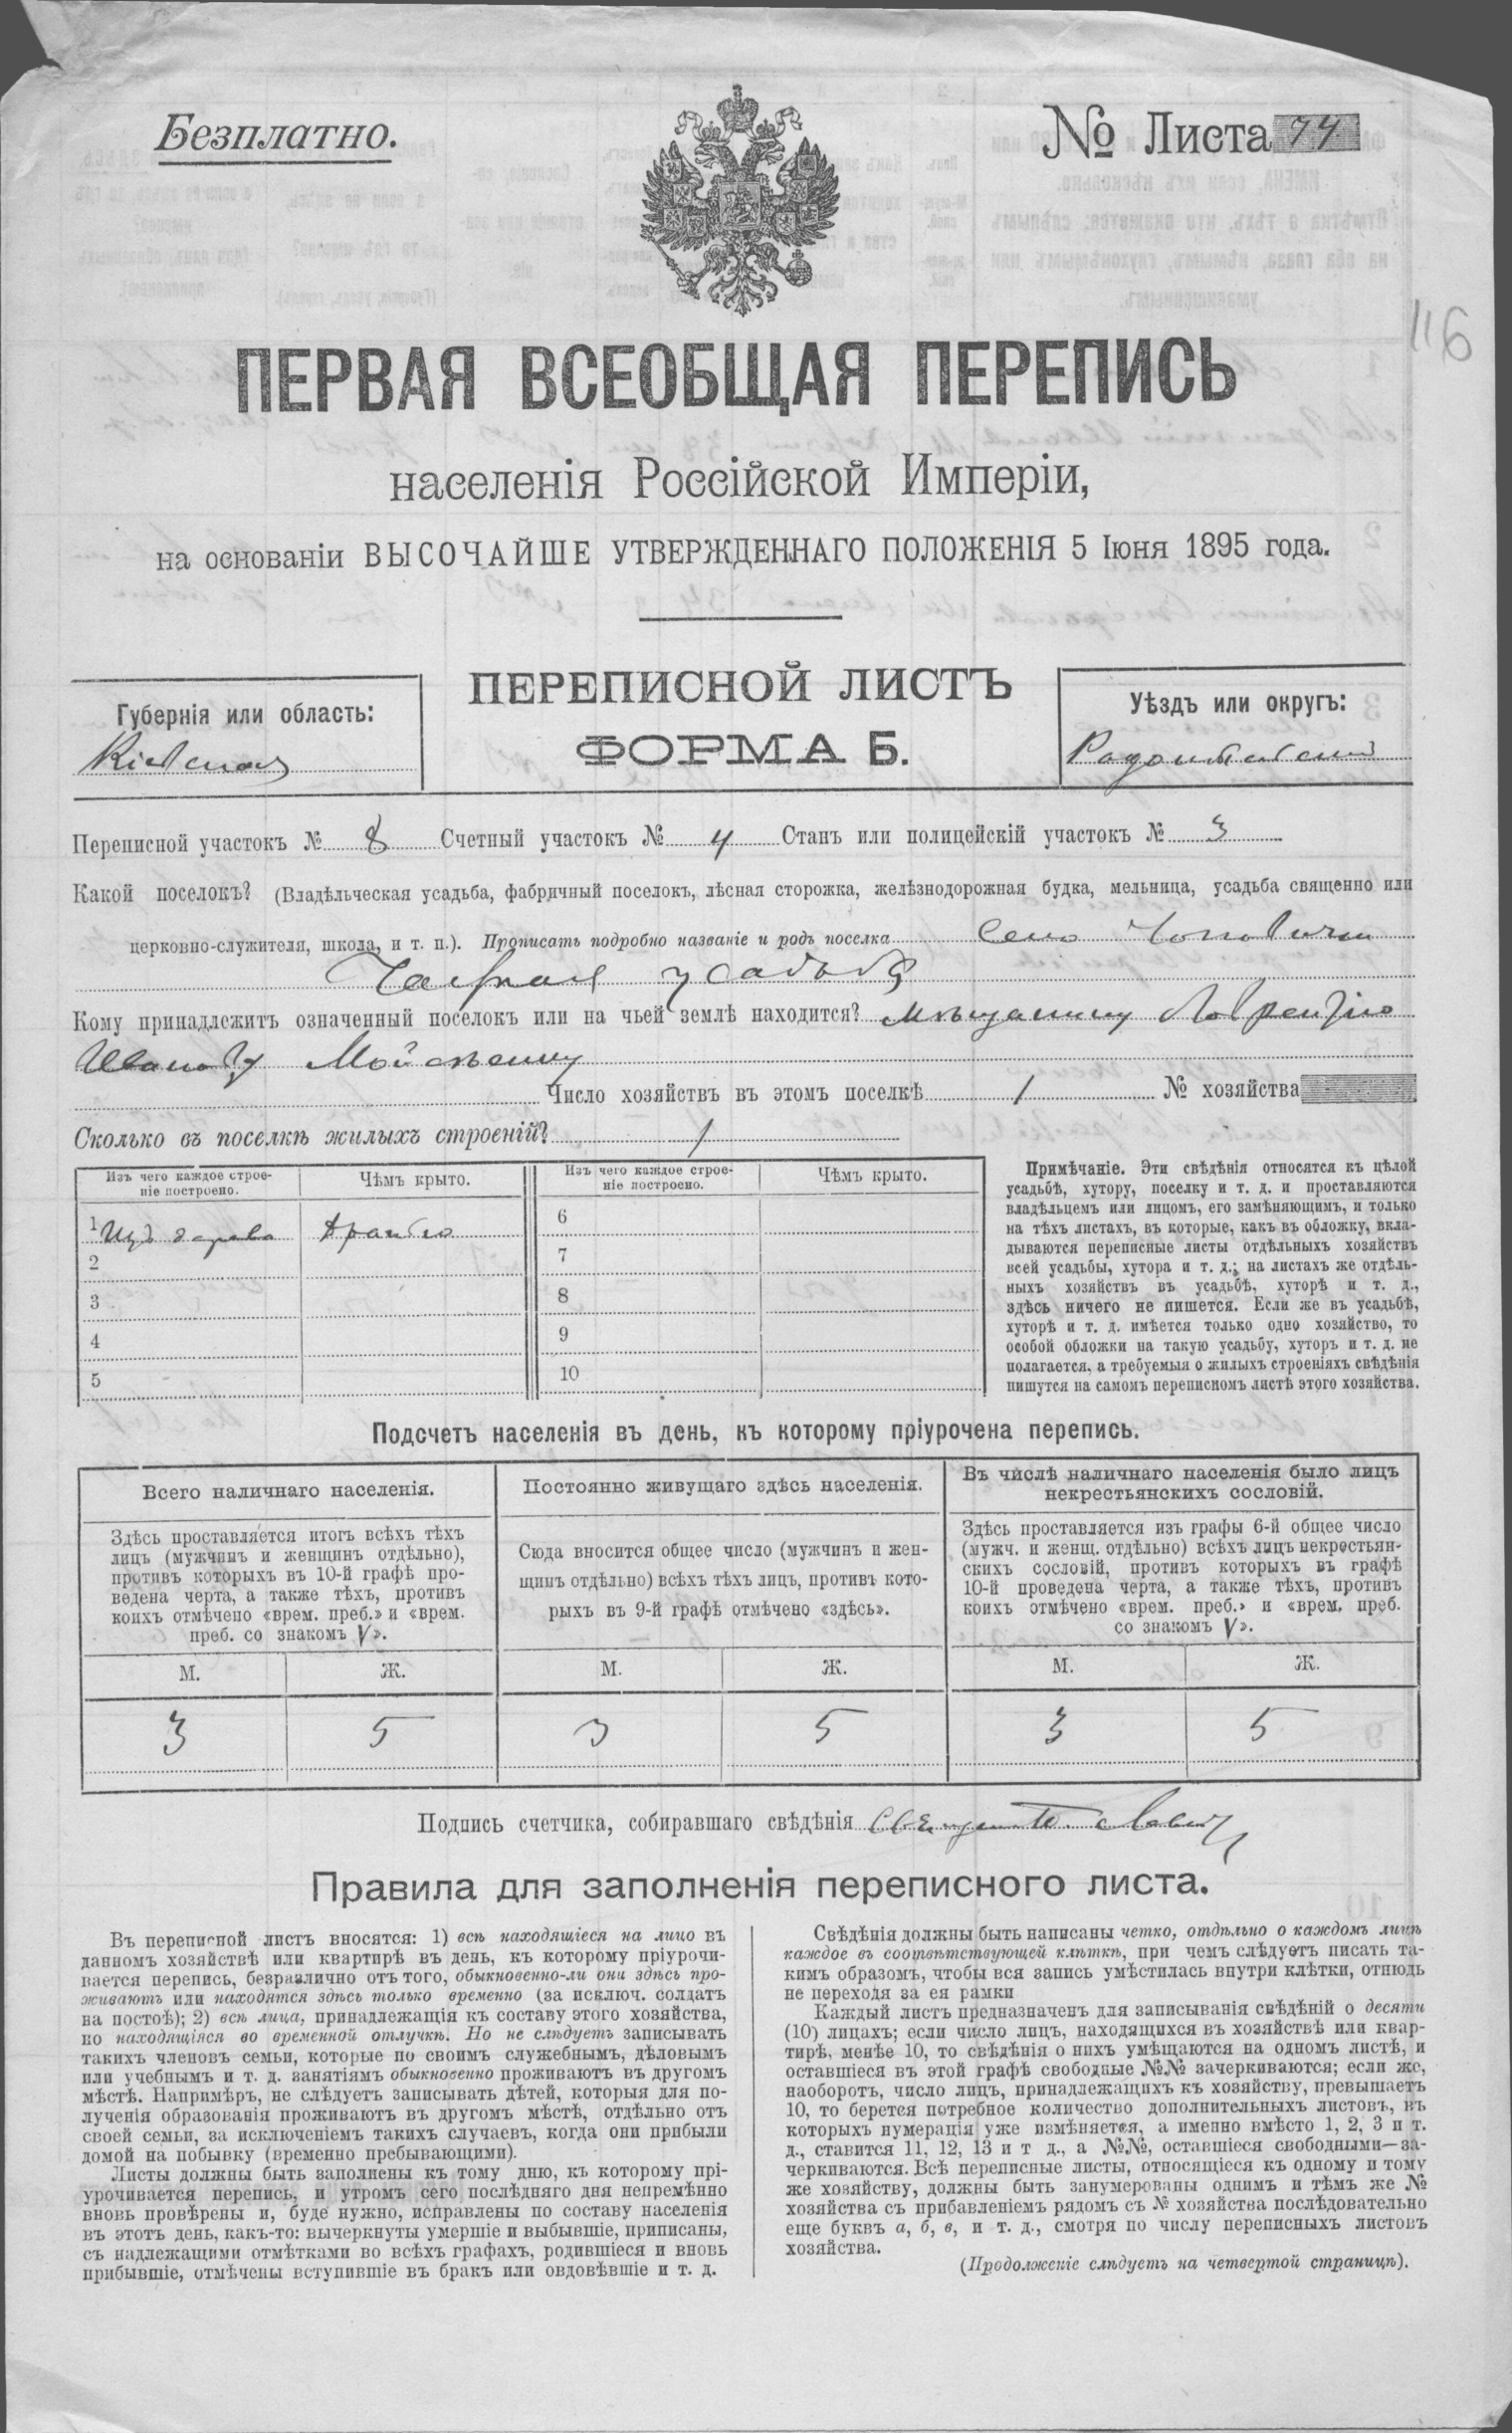 Безплатно.
№ Листа 74
116
ПЕРВАЯ ВСЕОБЩАЯ ПЕРЕПИСЬ
населенія Россійской Имперіи,
на основаніи ВЫСОЧАЙШЕ УТВЕРЖДЕННАГО ПОЛОЖЕНІЯ 5 Іюня 1895 года.
ПЕРЕПИСНОЙ ЛИСТЪ
ФОРМА Б.
Губернія или область:
Кіевская
Уѣздъ или округъ:
Радомысльскій
Переписной участокъ № 8 Счетный участокъ № 4 Станъ или полицейскій участокъ № 3
Какой поселокъ? (Владѣльческая усадьба, фабричный поселокъ, лѣсная сторожка, желѣзнодорожная будка, мельница, усадьба священно или
церковно-служителя, школа, и т. п.). Прописать подробно названіе и родъ поселка Село Чоповичи
усадьба
Кому принадлежитъ означенный поселокъ или на чьей землѣ находится? мѣщанину Лаврентію
Иванову Мойсѣенку
Число хозяйствъ въ этомъ поселкѣ 1 № хозяйства
Сколько въ поселкѣ жилыхъ строеній? 1
Изъ чего каждое строе-
ніе построено.
Чѣмъ крыто.
Изъ чего каждое строе-
ніе построено.
Чѣмъ крыто.
1 Изъ дерева
6
2
7
3
8
4
9
5
10
Примѣчаніе. Эти свѣдѣнія относятся къ цѣлой
усадьбѣ, хутору, поселку и т. д. и проставляются
владѣльцемъ или лицомъ, его замѣняющимъ, и только
на тѣхъ листахъ, въ которые, какъ въ обложку, вкла-
дываются переписные листы отдѣльныхъ хозяйствъ
всей усадьбы, хутора и т. д.; на листахъ же отдѣль-
ныхъ хозяйствъ въ усадьбѣ, хуторѣ и т. д.,
здѣсь ничего не пишется. Если же въ усадьбѣ,
хуторѣ и т. д. имѣется только одно хозяйство, то
особой обложки на такую усадьбу, хуторъ и т. д. не
полагается, а требуемыя о жилыхъ строеніяхъ свѣдѣнія
пишутся на самомъ переписномъ листѣ этого хозяйства.
Подсчетъ населенія въ день, къ которому пріурочена перепись.
Всего наличнаго населенія.
Здѣсь проставляется итогъ всѣхъ тѣхъ
лицъ (мужчинъ и женщинъ отдѣльно),
противъ которыхъ въ 10-й графѣ про-
ведена черта, а также тѣхъ, противъ
коихъ отмѣчено «врем. преб.» и «врем.
преб. со знакомъ V».
М. Ж.
3 5
Постоянно живущаго здѣсь населенія.
Сюда вносится общее число (мужчинъ и жен-
щинъ отдѣльно) всѣхъ тѣхъ лицъ, противъ кото-
рыхъ въ 9-й графѣ отмѣчено «здѣсь».
М. Ж.
3 5
Въ числѣ наличнаго населенія было лицъ
некрестьянскихъ сословій.
Здѣсь проставляется изъ графы 6-й общее число
(мужч. и женщ. отдѣльно) всѣхъ лицъ некрестьян-
скихъ сословій, противъ которыхъ въ графѣ
10-й проведена черта, а также тѣхъ, противъ
коихъ отмѣчено «врем. преб.» и «врем. преб.
со знакомъ V».
М. Ж.
3 5
Подпись счетчика, собиравшаго свѣдѣнія
Правила для заполненія переписного листа.
Въ переписной листъ вносятся: 1) всѣ находящіеся на лицо въ
данномъ хозяйствѣ или квартирѣ въ день, къ которому пріурочи-
вается перепись, безразлично отъ того, обыкновенно-ли они здѣсь про-
живаютъ или находятся здѣсь только временно (за исключ. солдатъ
на постоѣ); 2) всѣ лица, принадлежащія къ составу этого хозяйства,
но находящіяся во временной отлучкѣ. Но не слѣдуетъ записывать
такихъ членовъ семьи, которые по своимъ служебнымъ, дѣловымъ
или учебнымъ и т. д. занятіямъ обыкновенно проживаютъ въ другомъ
мѣстѣ. Напримѣръ, не слѣдуетъ записывать дѣтей, которыя для по-
лученія образованія проживаютъ въ другомъ мѣстѣ, отдѣльно отъ
своей семьи, за исключеніемъ такихъ случаевъ, когда они прибыли
домой на побывку (временно пребывающими).
Листы должны быть заполнены къ тому дню, къ которому прі-
урочивается перепись, и утромъ сего послѣдняго дня непремѣнно
вновь провѣрены и, буде нужно, исправлены по составу населенія
въ этотъ день, какъ-то: вычеркнуты умершіе и выбывшіе, приписаны,
съ надлежащими отмѣтками во всѣхъ графахъ, родившіеся и вновь
прибывшіе, отмѣчены вступившіе въ бракъ или овдовѣвшіе и т. д.
Свѣдѣнія должны быть написаны четко, отдѣльно о каждомъ лицѣ
каждое въ соотвѣтствующей клѣткѣ, при чемъ слѣдуетъ писать та-
кимъ образомъ, чтобы вся запись умѣстилась внутри клѣтки, отнюдь
не переходя за ея рамки
Каждый листъ предназначенъ для записыванія свѣдѣній о десяти
(10) лицахъ; если число лицъ, находящихся въ хозяйствѣ или квар-
тирѣ, менѣе 10, то свѣдѣнія о нихъ умѣщаются на одномъ листѣ, и
оставшіеся въ этой графѣ свободные №№ зачеркиваются; если же,
наоборотъ, число лицъ, принадлежащихъ къ хозяйству, превышаетъ
10, то берется потребное количество дополнительныхъ листовъ, въ
которыхъ нумерація уже измѣняется, а именно вмѣсто 1, 2, 3 и т.
д., ставится 11, 12, 13 и т д., а №№, оставшіеся свободными—за-
черкиваются. Всѣ переписные листы, относящіеся къ одному и тому
же хозяйству, должны быть занумерованы однимъ и тѣмъ же №
хозяйства съ прибавленіемъ рядомъ съ № хозяйства послѣдовательно
еще буквъ а, б, в, и т. д., смотря по числу переписныхъ листовъ
хозяйства.
(Продолженіе слѣдуетъ на четвертой страницѣ).